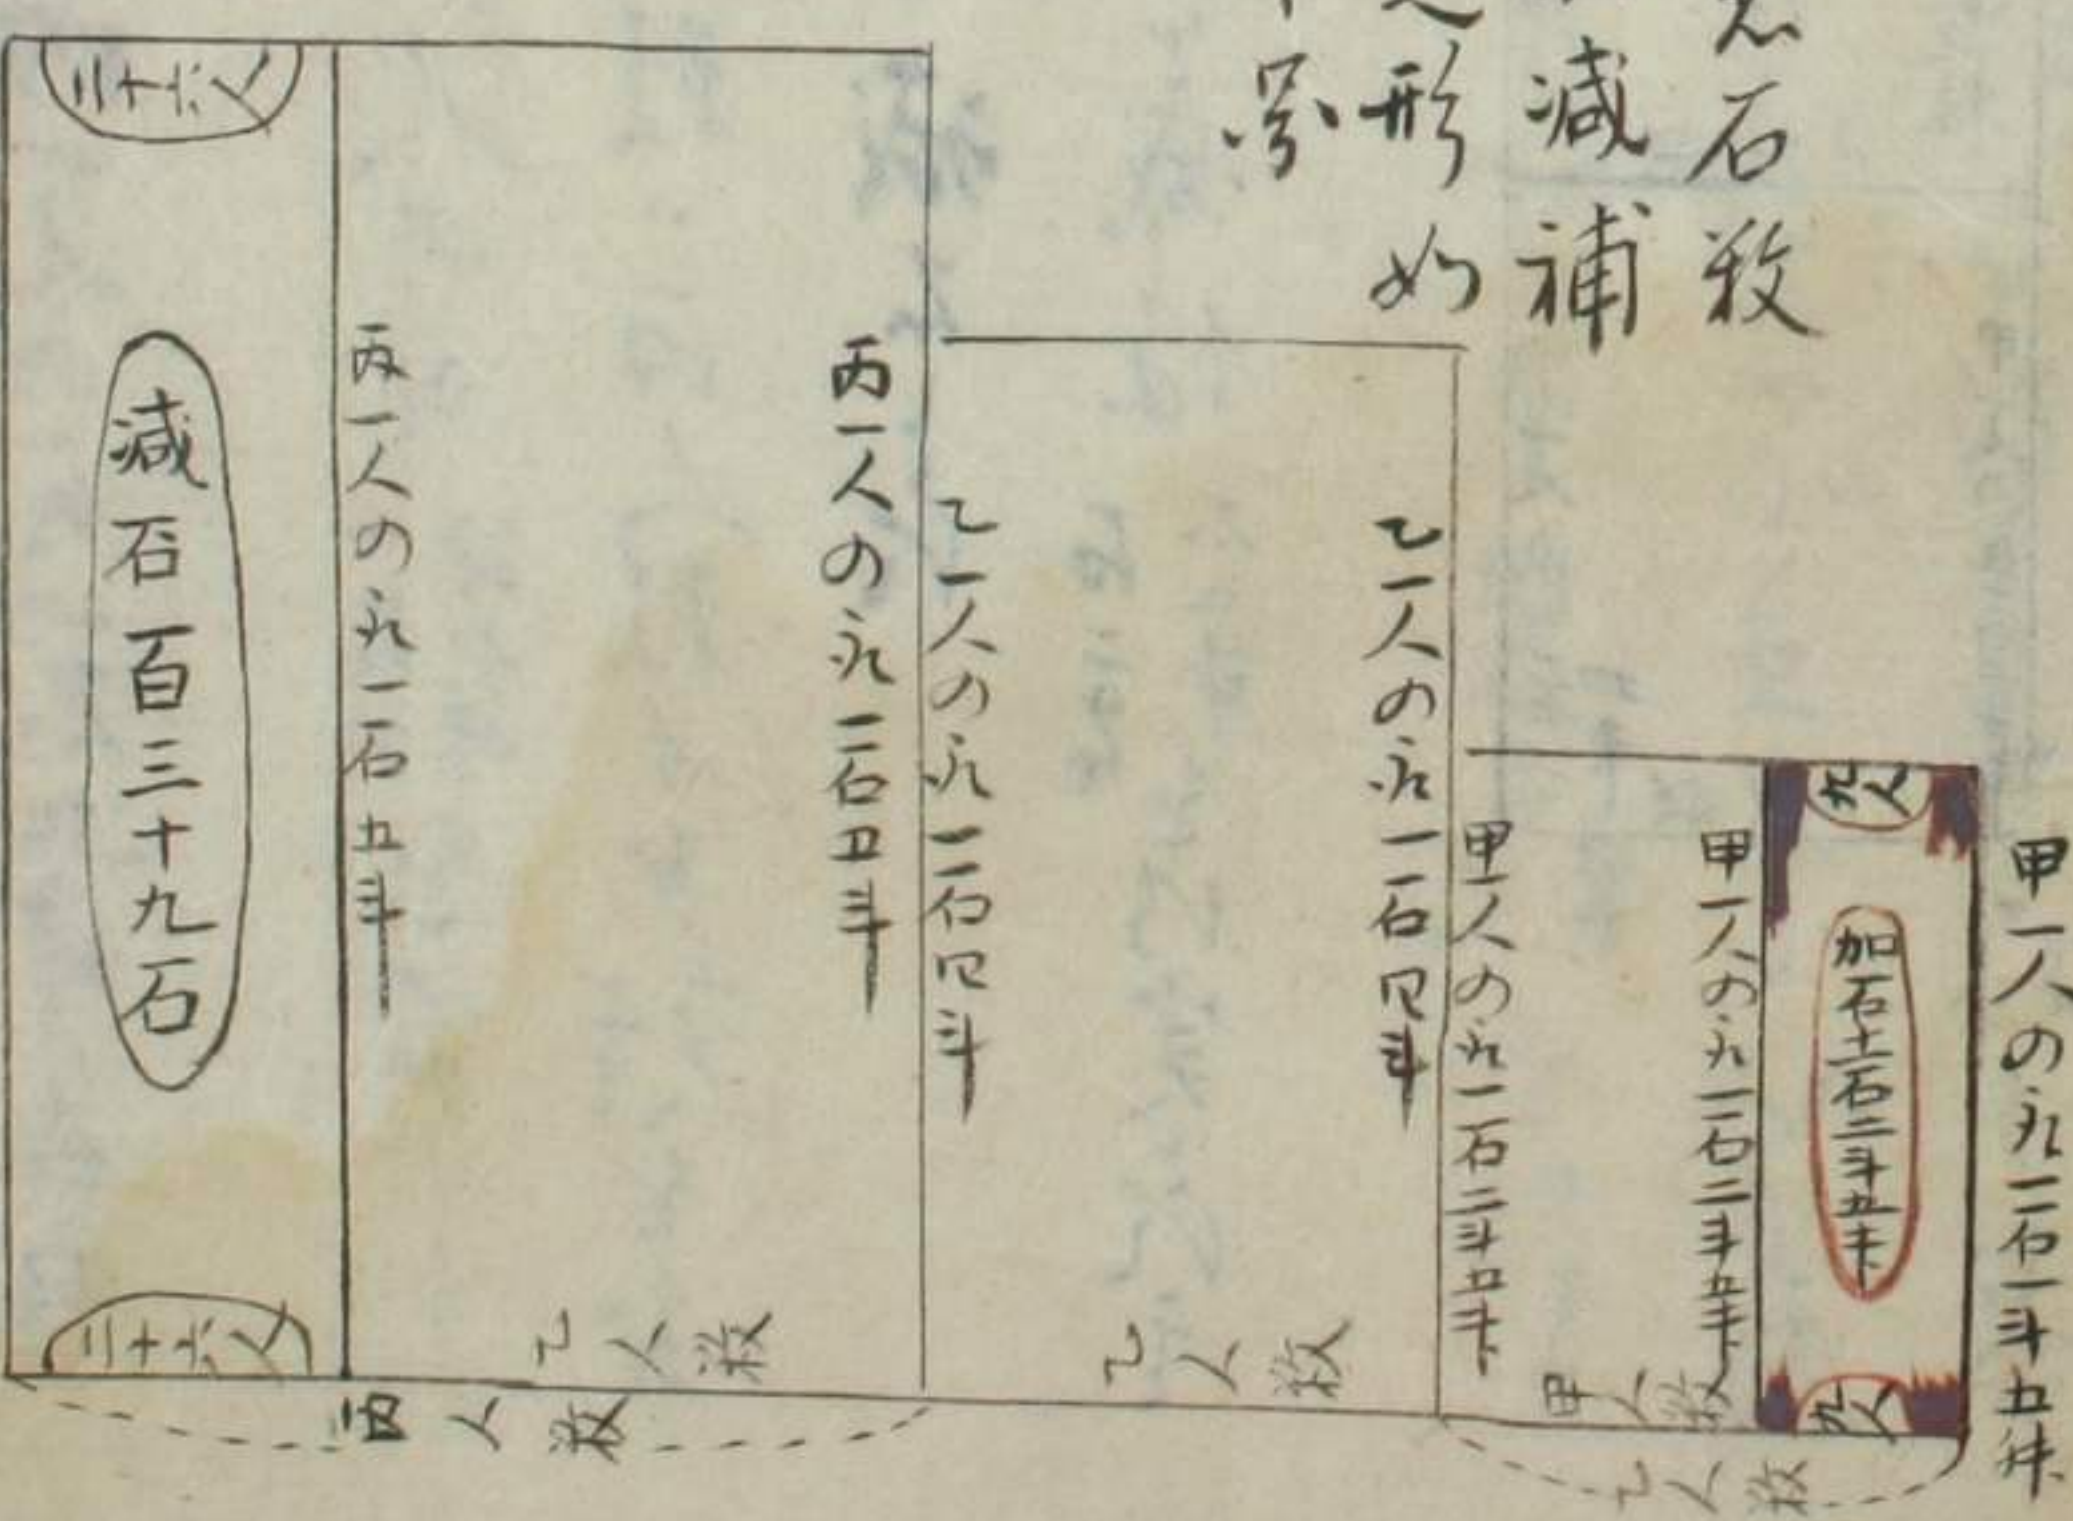 石数
減補
形如
甲一人の永一石二斗五升
九人
加石十一石二斗五升
九人
甲一人の永一石二斗五升
甲一人の永一石二斗五升
甲人数
乙人数
乙一人の永一石四斗
乙一人の永一石四斗
乙人数
丙一人の永一石五斗
丙一人の永一石五斗
乙人数
丙人数
二十六人
減石百三十九石
二十六人